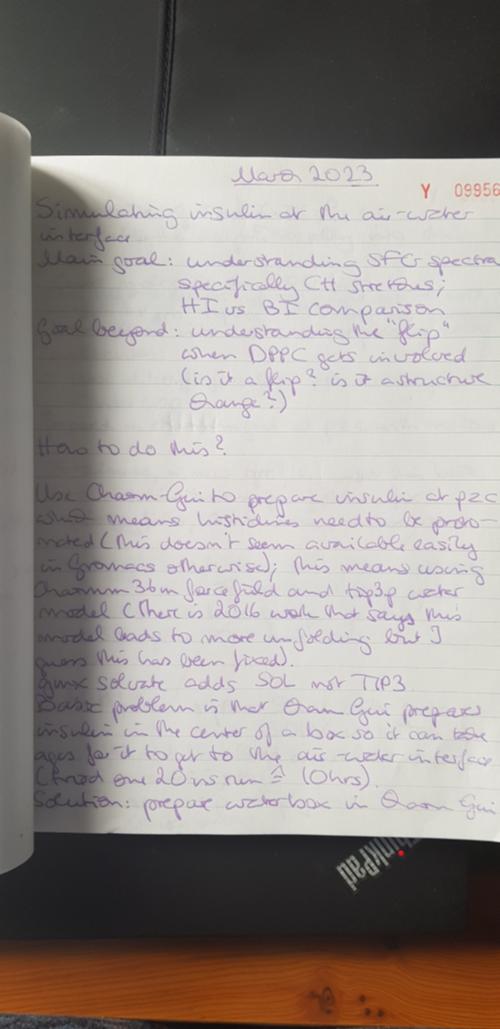 March 2023
Y 09956
Simulating insulin at the air-water
interface
Main goal: understanding SFG spectra
specifically CH stretches;
HI vs BI comparison
Goal beyond: understanding the "flip"
when DPPC gets involved
(is it a flip? is it a structure
change?)
How to do this?
Use Charm-Gui to prepare insulin at p2c
which means histidines need to be proto-
nated (this doesn't seem available easily
in Gromacs otherwise); this means using
Charmm36m forcefield and tip3p water
model (there is 2016 work that says this
model leads to more unfolding but I
guess this has been fixed).
gmx solvate adds SOL not TIP3
Basic problem is that Charm Gui prepares
insulin in the center of a box so it can take
ages for it to get to the air-water interface
(tried one 20 ns run ≙ 10hrs).
Solution: prepare waterbox in Charm Gui
ThinkPad